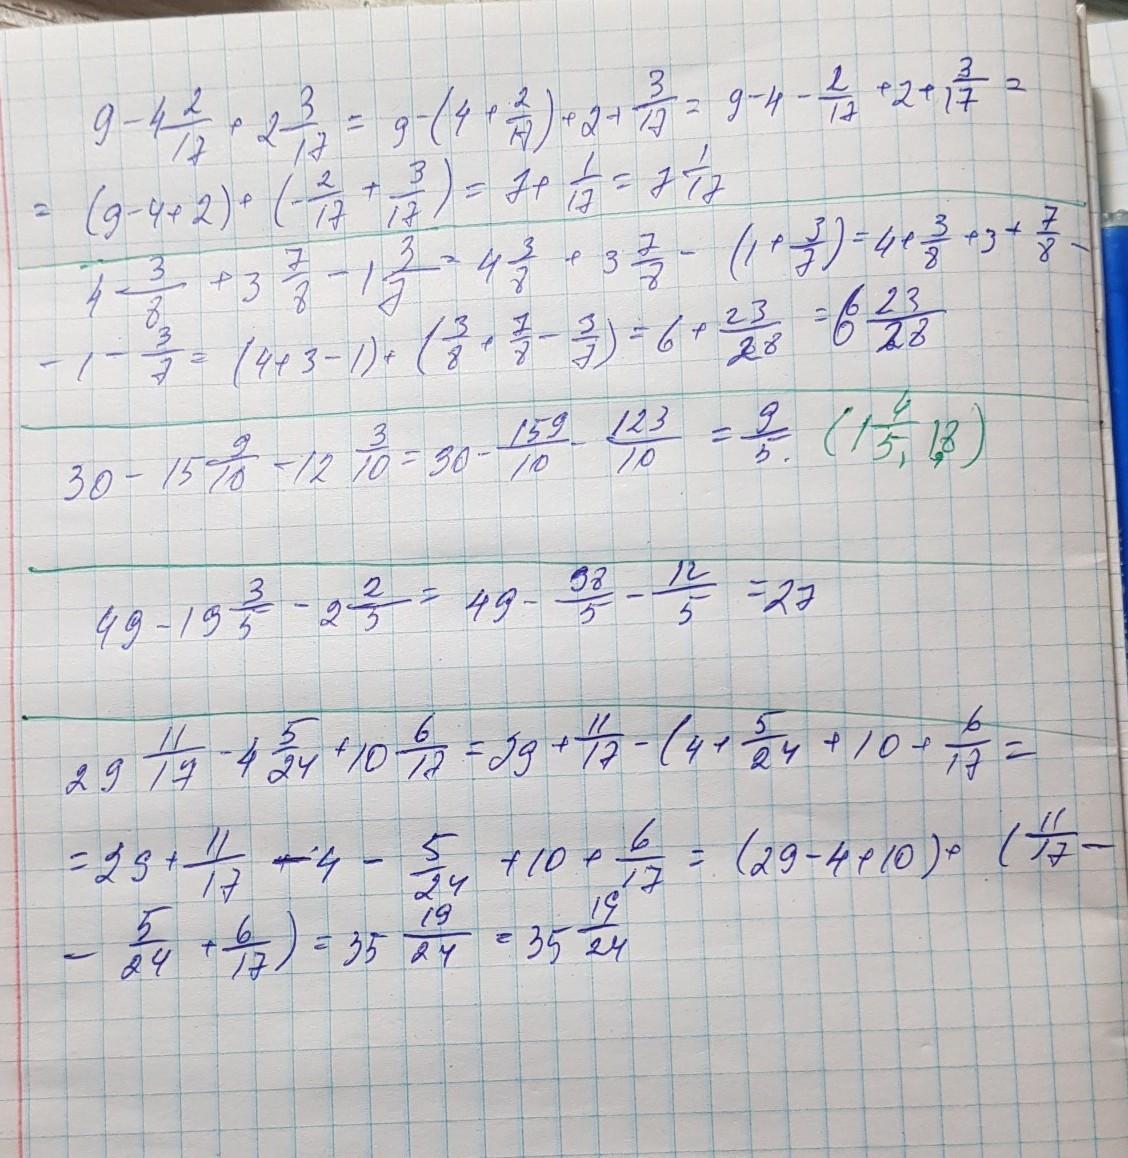 9 - 4 2/17 + 2 3/17 = 9 - (4 + 2/17) + 2 + 3/17 = 9 - 4 - 2/17 + 2 + 3/17 =
= (9 - 4 + 2) + (- 2/17 + 3/17) = 7 + 1/17 = 7 1/17
4 3/8 + 3 7/8 - 1 3/7 = 4 3/8 + 3 7/8 - (1 + 3/7) = 4 + 3/8 + 3 + 7/8 -
- 1 - 3/7 = (4 + 3 - 1) + (3/8 + 7/8 - 3/7) = 6 + 23/28 = 6 23/28
30 - 15 9/10 - 12 3/10 = 30 - 159/10 - 123/10 = 9/5. (1 4/5, 1,8)
49 - 19 3/5 - 2 2/5 = 49 - 98/5 - 12/5 = 27
29 11/17 - 4 5/24 + 10 6/17 = 29 + 11/17 - (4 + 5/24 + 10 + 6/17 =
= 29 + 11/17 - 4 - 5/24 + 10 + 6/17 = (29 - 4 + 10) + (11/17 -
- 5/24 + 6/17) = 35 19/24 = 35 19/24